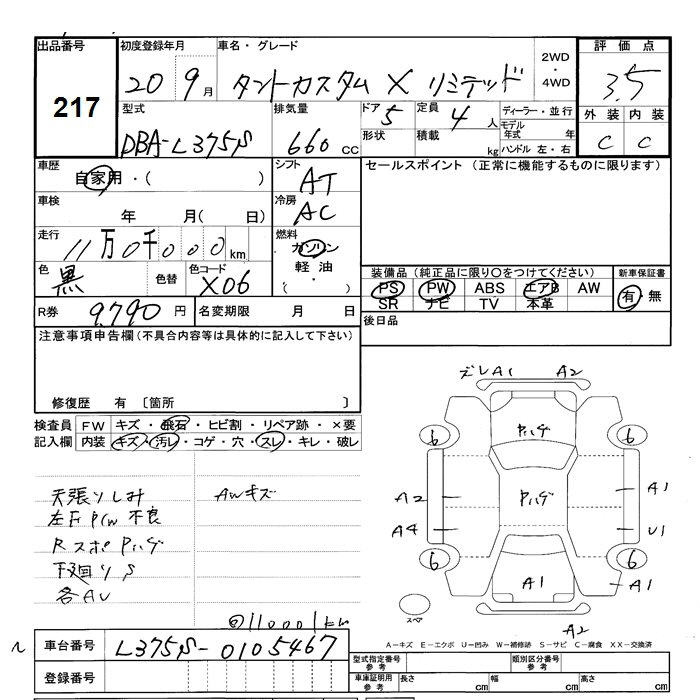 出品番号 初度登録年月 車名・グレード 2WD・4WD 評価点
217 20 9月 タントカスタム X リミテッド 3.5
型式 排気量 ドア 5 定員 4人 ディーラー・並行 外装 内装
DBA-L375S 660cc 形状 積載 kg モデル年式 年 C C
ハンドル 左・右
車歴 自家用・( ) シフト AT セールスポイント (正常に機能するものに限ります)
車検 年 月( 日) 冷房 AC
走行 11万0千000km 燃料 ガソリン 軽油 ・( )
色 黒 色替 色コード X06 装備品 (純正品に限り〇をつけてください) 新車保証書
PS PW ABS エアB AW 有・無
SR ナビ TV 本革
R券 9,790円 名変期限 月 日 後日品
注意事項申告欄(不具合内容等は具体的に記入して下さい)
修復歴 有 〔箇所 〕
検査員 FW キズ・飛石・ヒビ割・リペア跡・×要
記入欄 内装 キズ・汚レ・コゲ・穴・スレ・キレ・破レ
天張りしみ AWキズ
不良
下廻りS
ズレA1 A2
6 6
A2 A1
A4 U1
6 6
A1 A1
スペア A2
A-キズ E-エクボ U-凹み W-補修跡 S-サビ C-腐食 XX-交換済
車台番号 L375S-0105467
登録番号
型式指定番号 参考 類別区分番号 参考
車庫証明用 参考 長さ cm 幅 cm 高さ cm